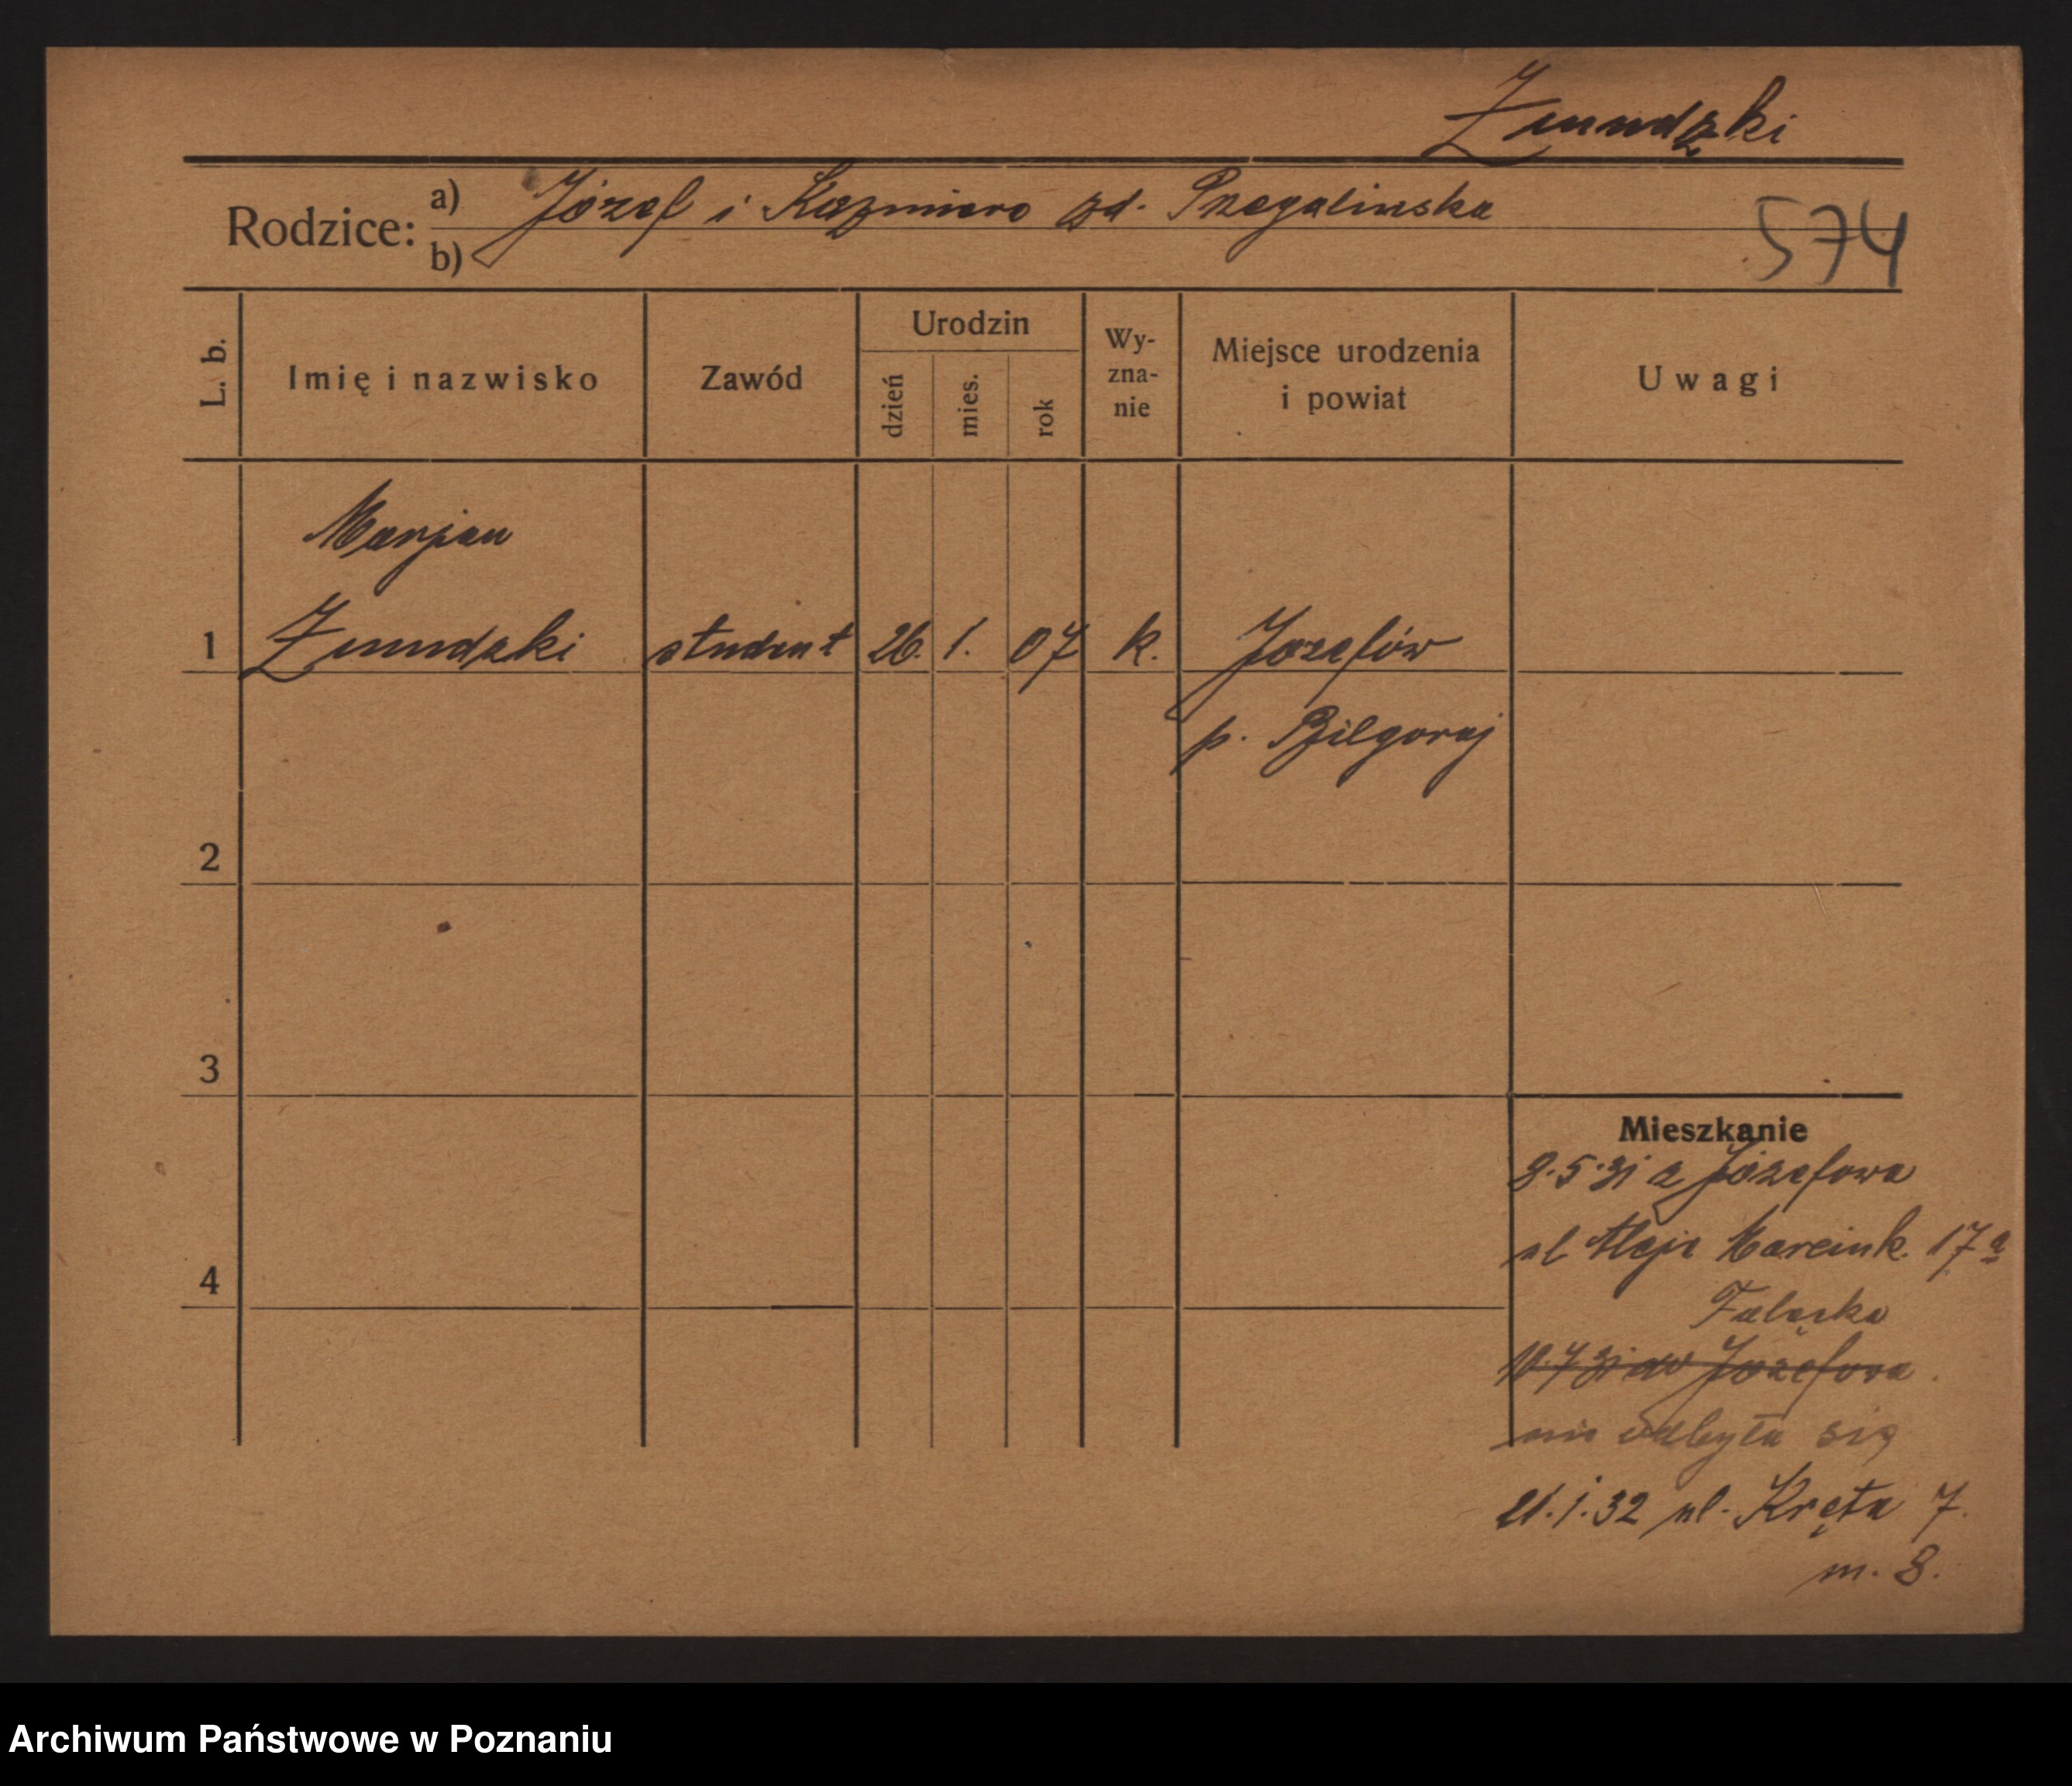 Żmudzki
Rodzice:
a) Józef i Kazmiera zd. Przegalinska
b)
574
L. b.
Imię i nazwisko
Zawód
Urodzin
dzień
mies.
rok
Wy-
zna-
nie
Miejsce urodzenia
i powiat
Uwagi
Marjan
1 Żmudzki student 26. 1. 07 k. Józefów
p. Biłgoraj
2
3
4
Mieszkanie
8.5.31 z Józefowa
ul Aleje Marcink. 17a
10.7.31 do Józefowa
nie odbyła się
21.1.32 ul. Kręta 7.
m. 8.
Archiwum Państwowe w Poznaniu